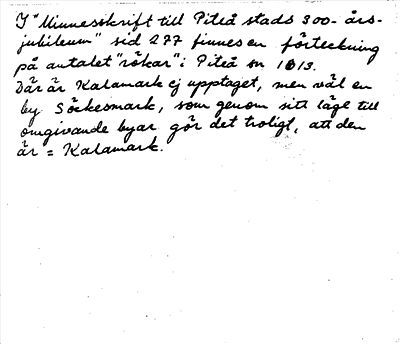 I "Minnesskrift till Piteå stads 300-års-
jubileum" sid 277 finnes en förteckning
på antalet "rökar" i Piteå sn 1613.
Där är Kalamark ej upptaget, men väl en
by Söckesmark, som genom sitt läge till
omgivande byar gör det troligt, att den
är = Kalamark.